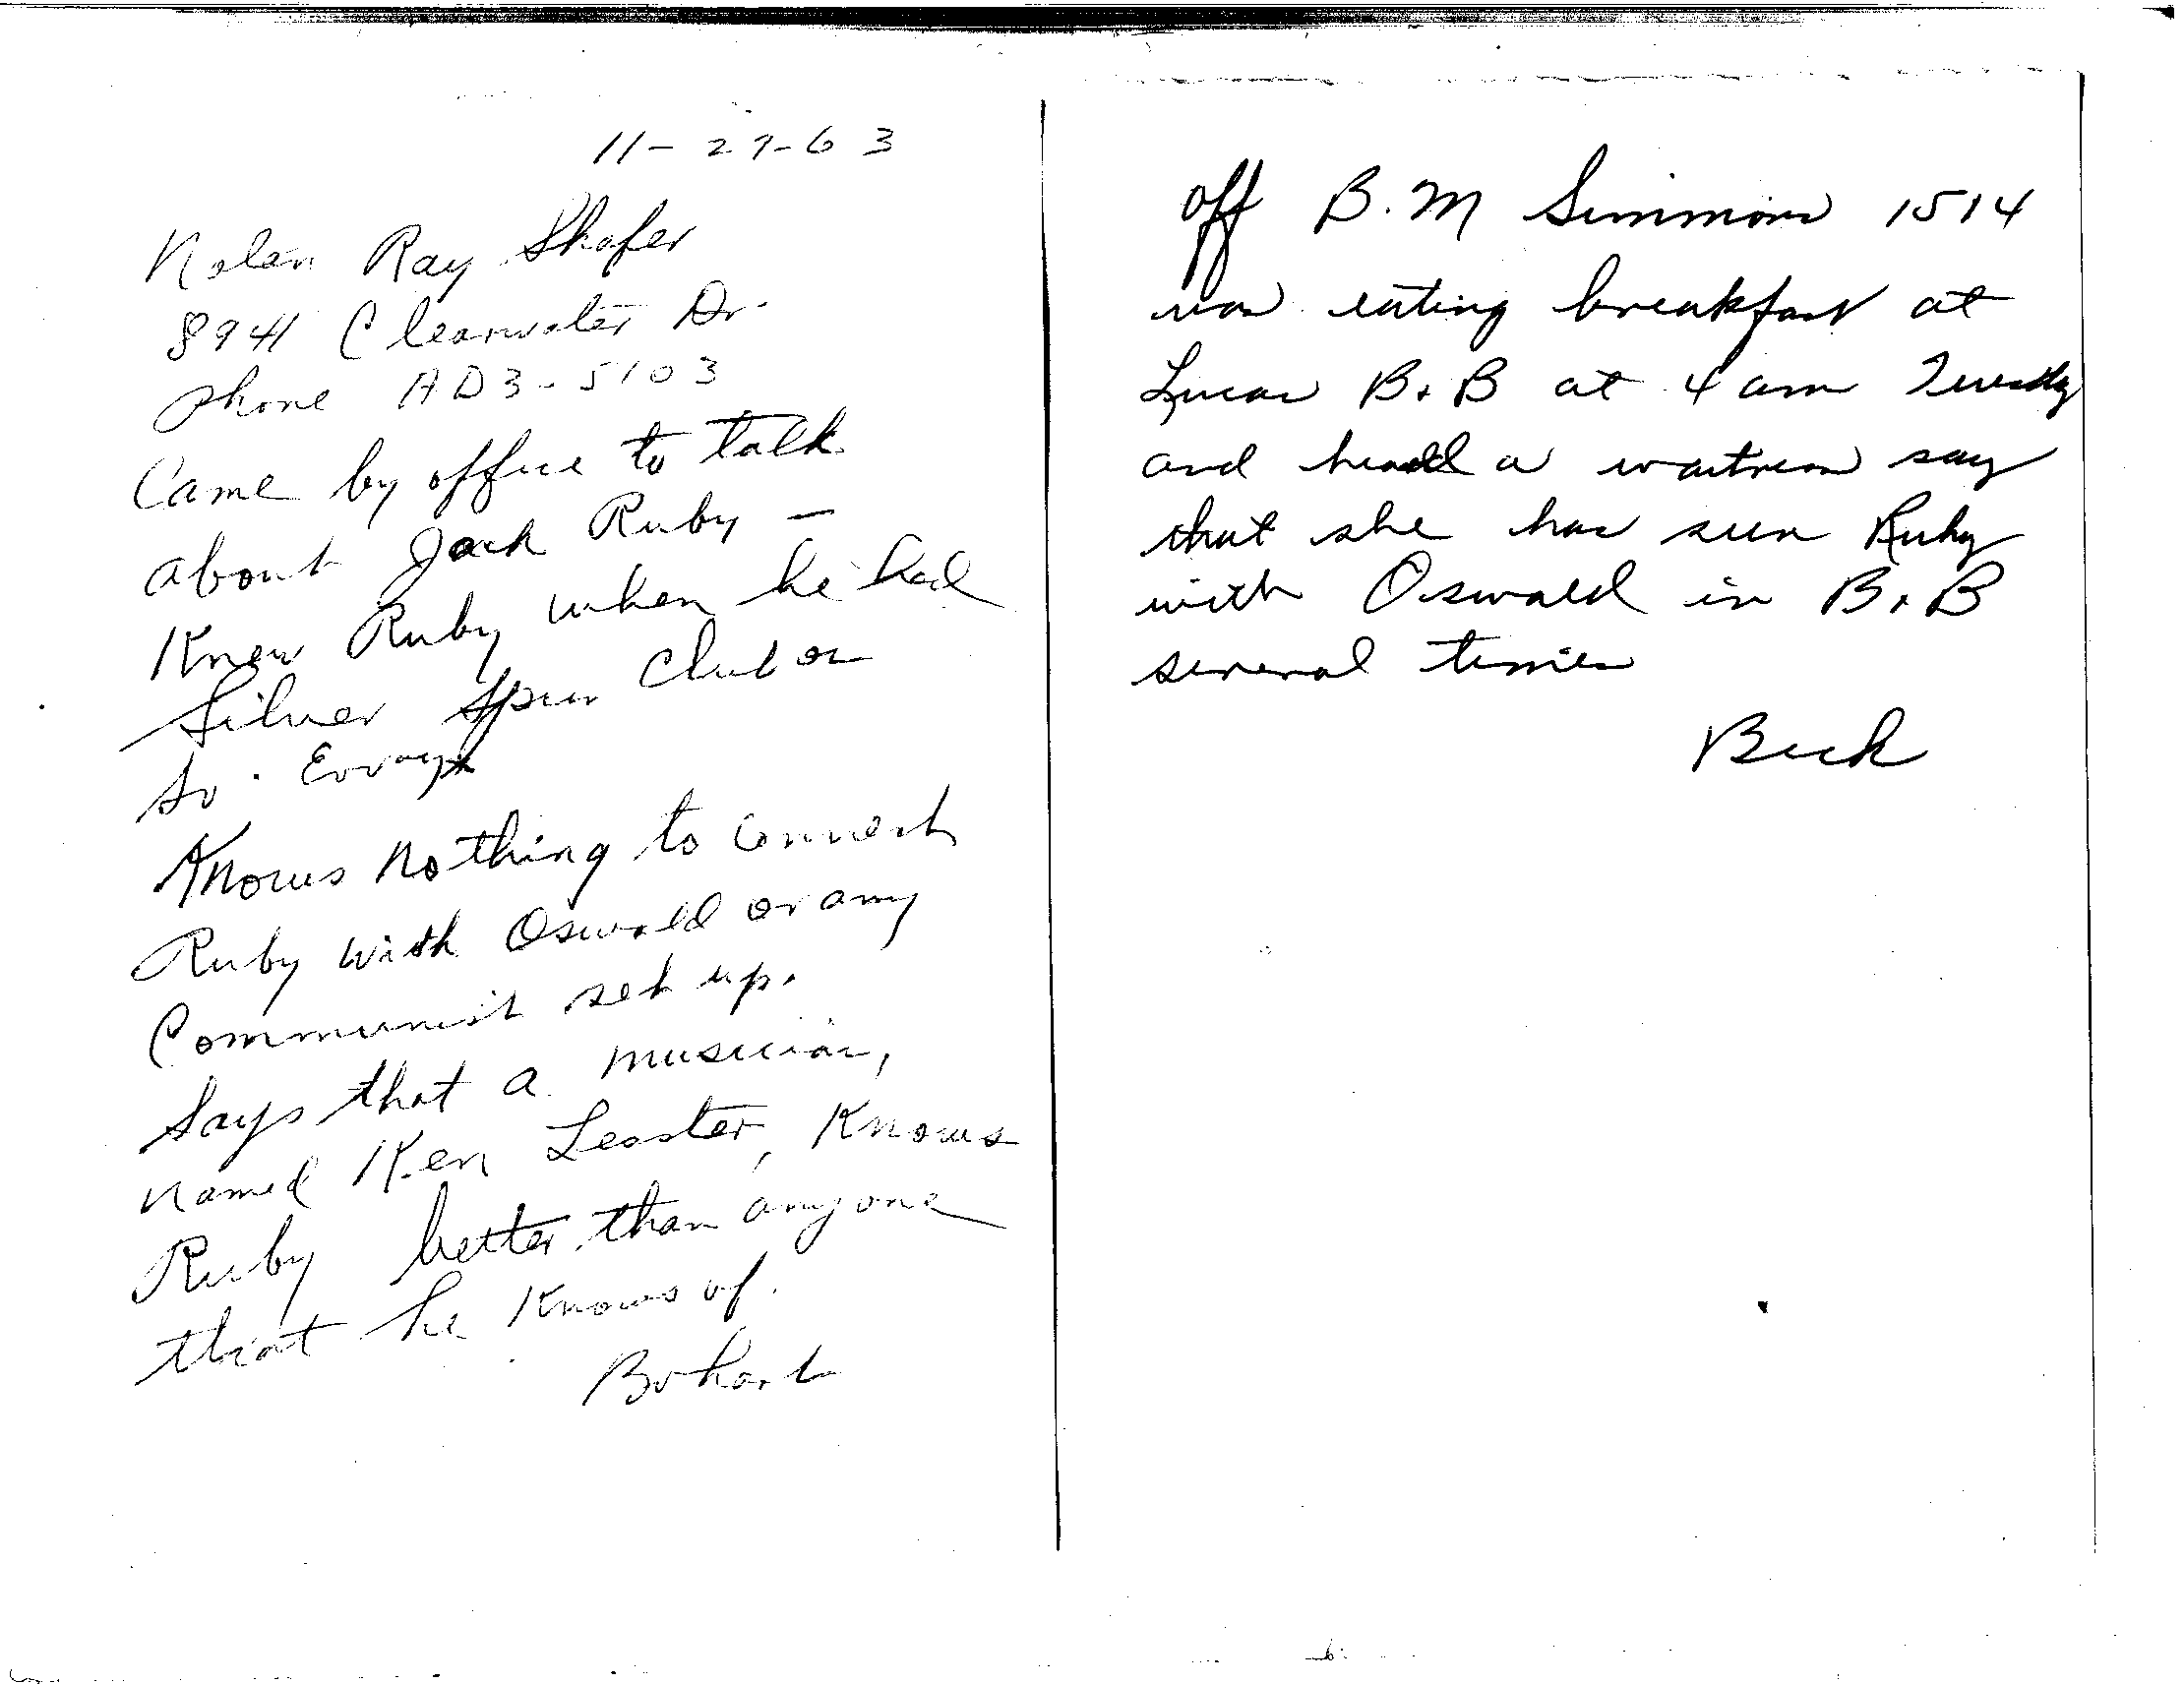 11-27-63
Nolan Ray Shafer
8941 Clearwater Dr.
phone AD3-5103
Came by office to talk
about Jack Ruby —
Knew Ruby when he had
Silver Spur Club on
So. Ervay
Knows nothing to connect
Ruby with Oswald or any
Communist set up.
Says that a musician,
named Ken Lesster, Knows
Ruby better than anyone
that he Knows of.
Bohart
off B.M Simmons 1514
was eating breakfast at
Lucas B&B at 4 am Tuesday
and heard a waitress say
that she has seen Ruby
with Oswald in B&B
several times
Beck